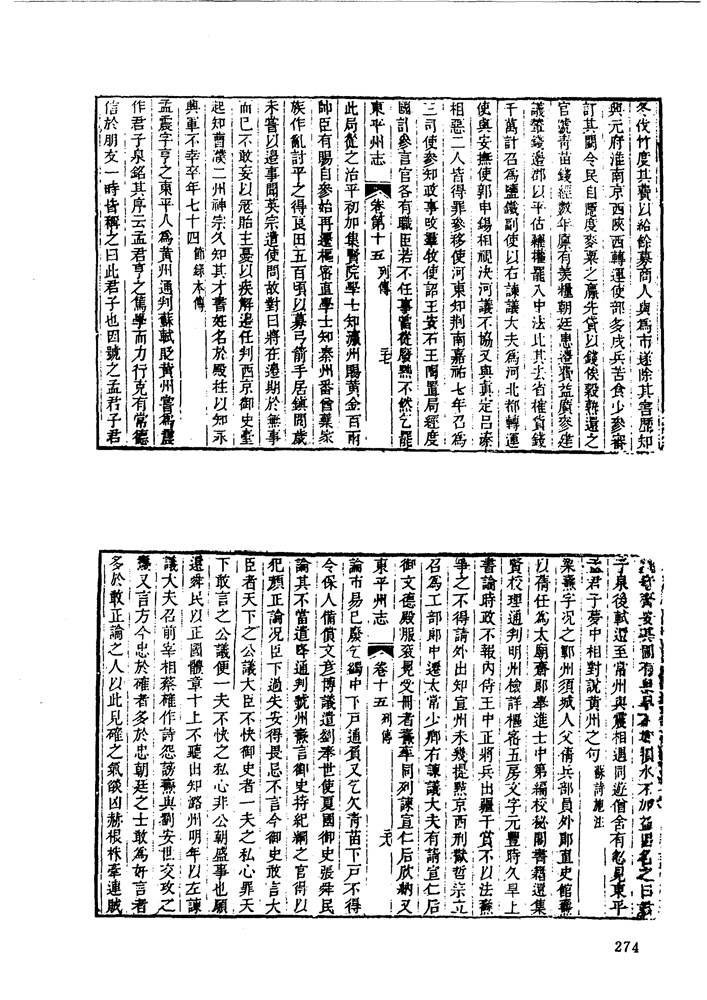 冬伐竹度其費以給餘募商人與為市遂除其害歷知
興元府淮南京西陝西轉運使部多戍兵苦食少參審
訂其闕令民自隱度麥粟之贏先貸以錢俟穀熟還之
官號青苗錢經數年廩有羨糧朝廷患邊費益廣參建
議罷錢邊郡以平估糴權罷入中法比其去省榷貨錢
千萬計召為鹽鐵副使以右諫議大夫為河北都轉運
使與安撫使郭申錫相視決河議不協又與真定呂溱
相惡二人皆得罪參移使河東知荆南嘉祐七年召為
三司使參知政事改羣牧使詔王安石王陶置局經度
國計參言官各有職臣若不任事當從廢黜不然乞罷
東平州志 卷第十五 列傳 二七
此局從之治平初加集賢院學士知瀛州賜黃金百兩
帥臣有賜自參始再遷樞密直學士知秦州蕃酋藥家
族作亂討平之得良田五百頃以募弓箭手居鎮閱歲
未嘗以邊事聞英宗遣使問故對曰將在邊期於無事
而已不敢妄以寇貽主憂以疾解邊任判西京御史臺
起知曹濮二州神宗久知其才書姓名於殿柱以知永
興軍不幸卒年七十四 節錄本傳
孟震字亨之東平人為黃州通判蘇軾貶黃州嘗為震
作君子泉銘其序云孟君亨之篤學而力行克有常德
信於朋友一時皆稱之曰此君子也因號之孟君子君
水不加益因名之曰君
子泉後軾還至常州與震相遇同遊僧舍有忽見東平
孟君子夢中相對說黃州之句 蘇詩施注
梁燾字況之鄆州須城人父蒨兵部員外郎直史館燾
以蒨任為太廟齋郎舉進士中第編校秘閣書籍遷集
賢校理通判明州檢詳樞密五房文字元豐時久旱上
書論時政不報內侍王中正將兵出疆干賞不以法燾
爭之不得請外出知宣州未幾提點京西刑獄哲宗立
召為工部郎中遷太常少卿右諫議大夫有請宣仁后
御文德殿服袞冕受冊者燾率同列諫宣仁后欣納又
東平州志 卷十五 列傳 二八
論市易已廢乞蠲中下戶逋負又乞欠青苗下戶不得
令保人備償文彥博議遣劉奉世使夏國御史張舜民
論其不當遣降通判虢州燾言御史持紀綱之官得以
犯顏正論況臣下過失安得畏忌不言今御史敢言大
臣者天下之公議大臣不快御史者一夫之私心罪天
下敢言之公議便一夫不快之私心非公朝盛事也願
還舜民以正國體章十上不聽出知潞州明年以左諫
議大夫召前宰相蔡確作詩怨謗燾與劉安世交攻之
燾又言方今忠於確者多於忠朝廷之士敢為奸言者
多於敢正論之人以此見確之氣燄凶赫根株牽連賊
274